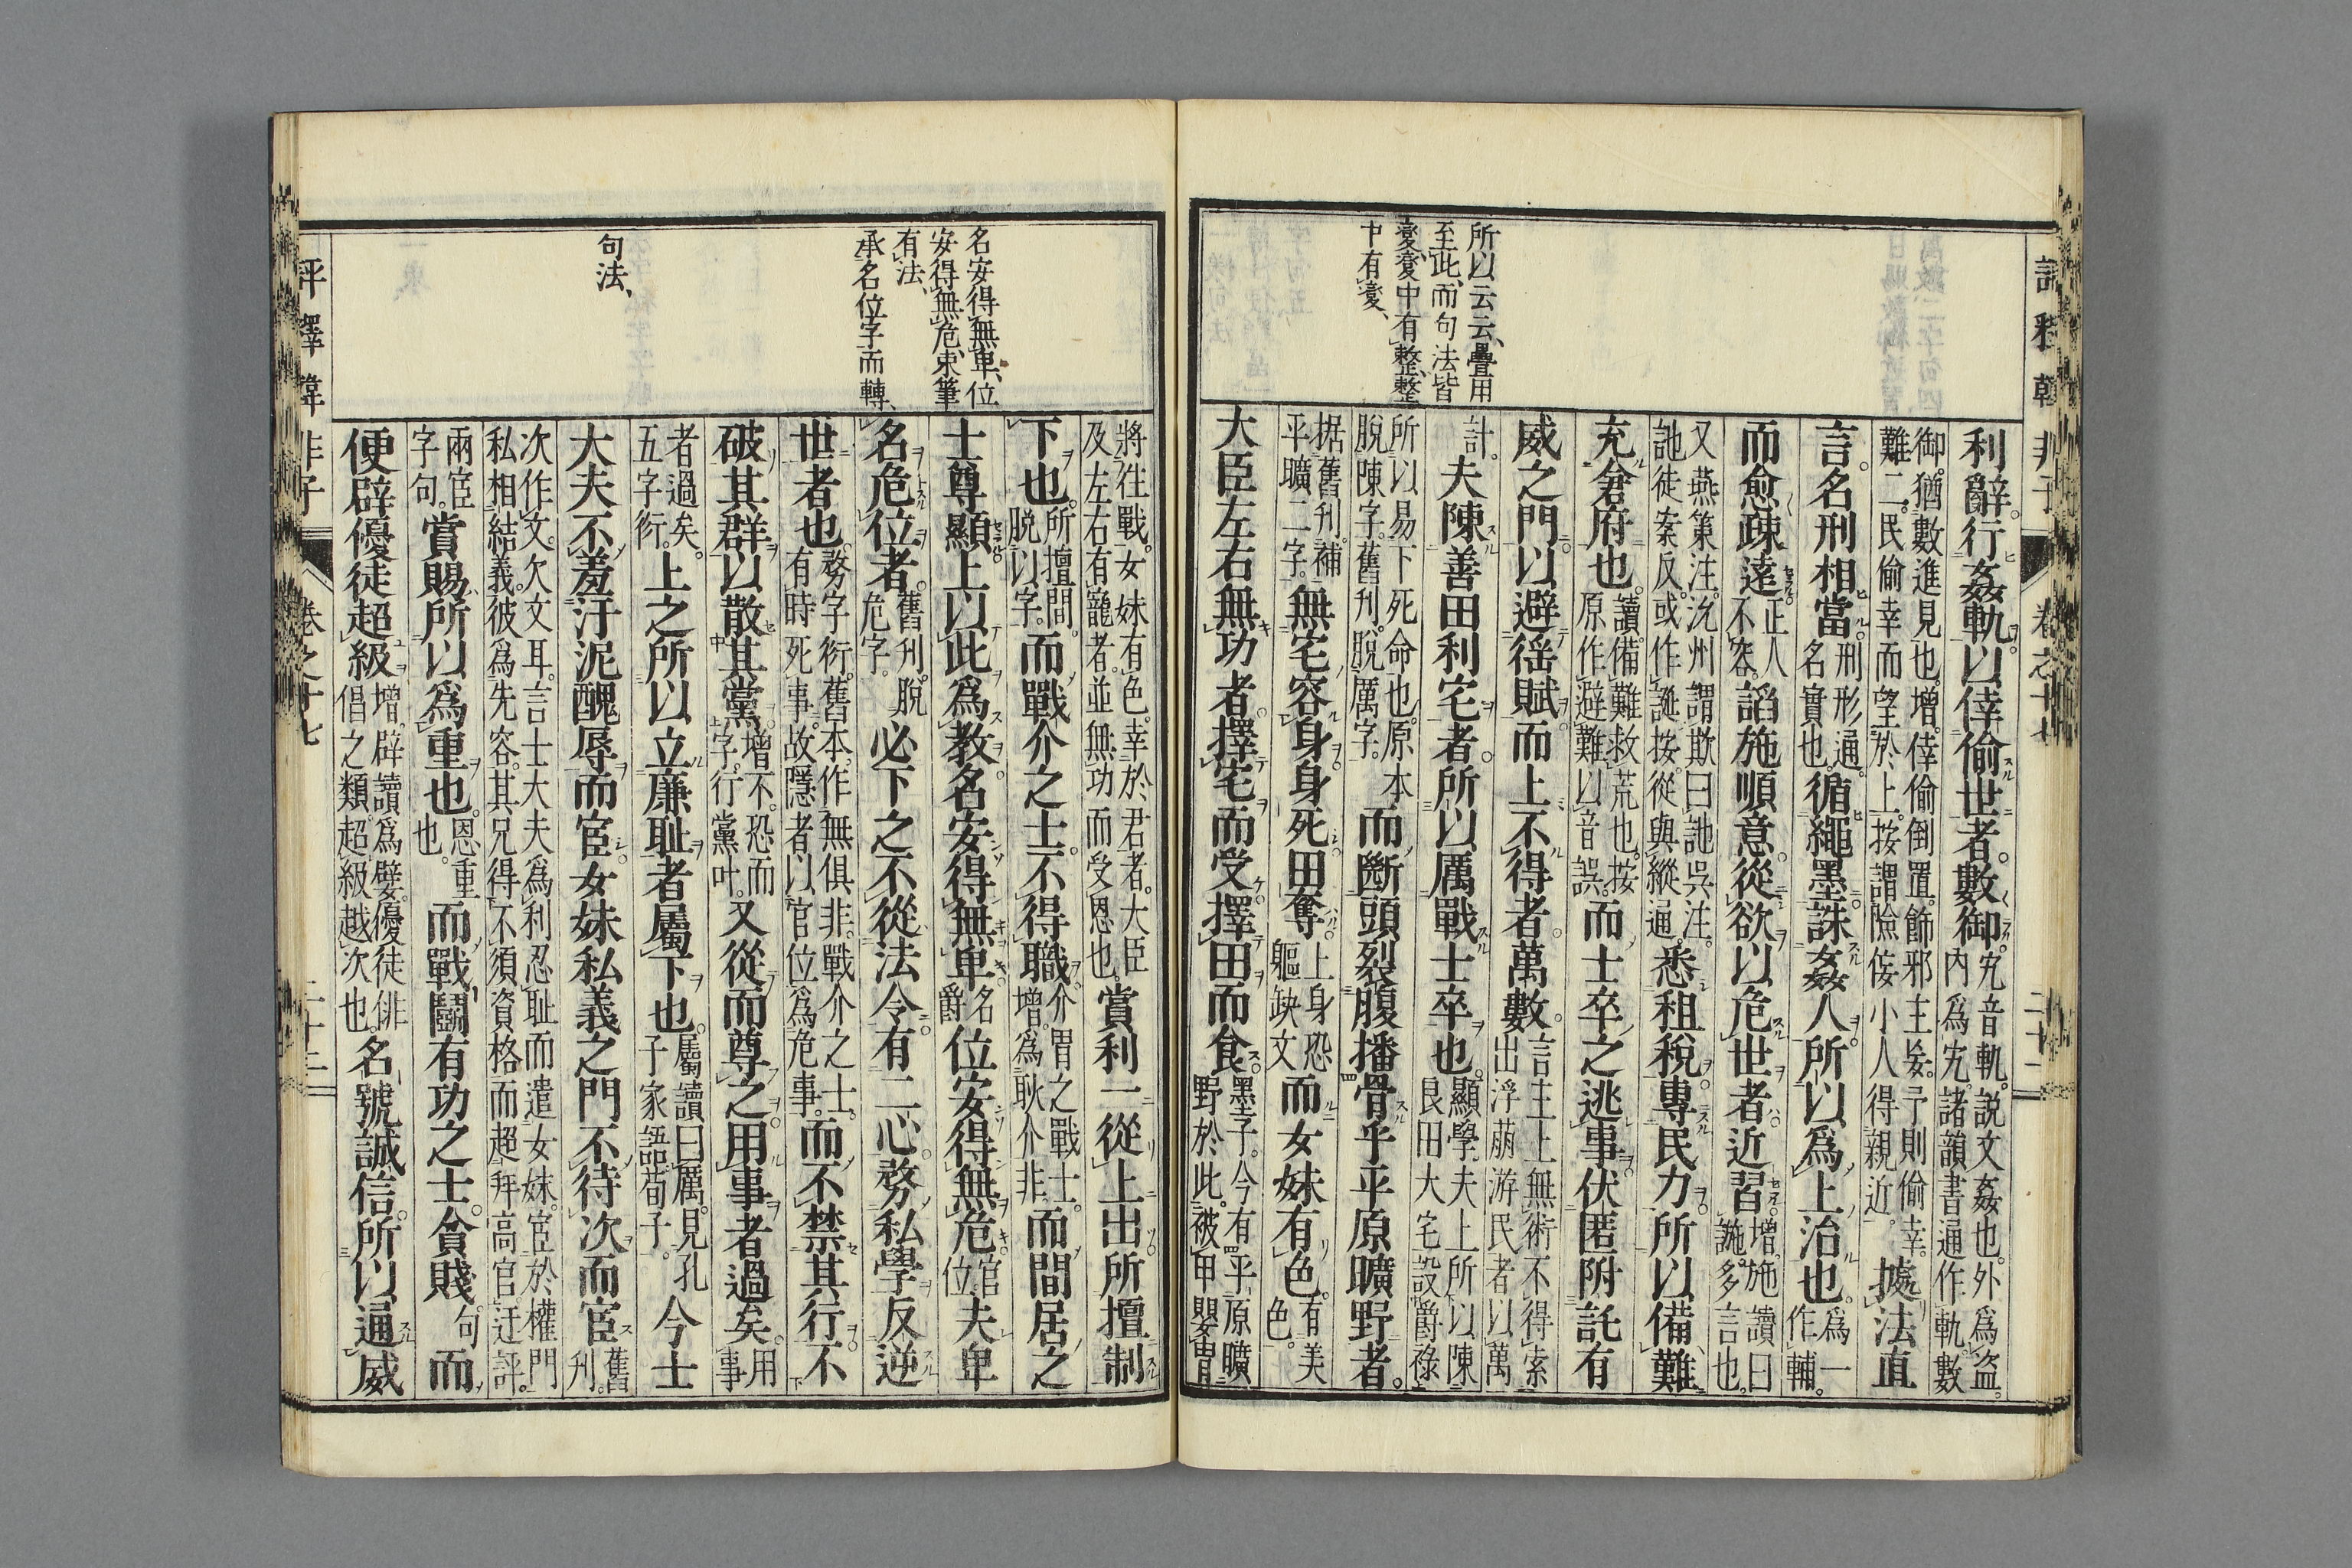 所以云云、疊用
至此、而句法皆
變、變中有整、整
中有變、
利辭。行姦軌。以倖偷世者。數御。宄音軌。說文姦也。外爲盜。
內爲宄。諸韻書通作軌。數
御。猶數進見也。增。倖偷倒置。飾邪主妄。予則偷幸。
難二。民偷幸而望於上。按謂險侫小人得親近。據法直
言。名刑相當。刑形通。
名實也。循繩墨。誅姦人。所以爲上治也。爲一
作輔。
而愈疎遠。正人
不容。謟施順意。從欲以危世者近習。增。施讀曰
訑。多言也。
又燕策注。沇州謂欺曰訑。吳注。
訑徒案反。或作誕。按。從與縱通。悉租稅。專民力。所以備難
充倉府也。讀備難救荒也。按
原作避難以音誤。而士卒之逃事伏匿附託有
威之門。以避徭賦。而上不得者萬數。言主上無術不得索
出浮萠游民者以萬
計。夫陳善田利宅者。所以厲戰士卒也。顯學。夫上所以陳
良田大宅設爵祿
所以易下死命也。原本
脫陳字。舊刊。脫厲字。而斷頭裂腹。播骨乎平原曠野者。
据舊刊。補
平曠二字。無宅容身。身死田奪。上身恐
軀缺文而女妹有色。有美
色。
大臣左右無功者。擇宅而受。擇田而食。墨子。今有平原曠
野於此。被甲嬰冑
名安得無卑、位
安得無危、束筆
有法、
承名位字而轉、
句法、
將往戰。女妹有色。幸於君者。大臣
及左右有寵者。並無功而受恩也。賞利一從上出。所擅制
下也。所擅間。
脫以字。而戰介之士。不得職。介冑之戰士。
增。爲耿介非。而間居之
士尊顯。上以此爲教。名安得無卑。名
爵位安得無危。官
位夫卑
名危位者。舊刊。脫
危字。必下之不從法令。有二心。務私學。反逆
世者也。務字衍。舊本。作無俱非。戰介之士。
有時死事。故隱者以官位爲危事。而不禁其行。不
破其群。以散其黨。增。不。恐而
字。行黨叶。又從而尊之。用事者過矣。用
事
者過矣。
五字衍。上之所以立廉耻者。屬下也。屬讀曰厲。見孔
子家語荀子。今士
大夫不羞汙泥醜辱而宦。女妹私義之門不待次而宦。舊
刊。
次作文。欠文耳。言士大夫爲利忍耻而遣女妹。宦於權門
私相結義。彼爲先容。其兄得不須資格而超拜高官。迂評。
兩宦
字句。賞賜。所以爲重也。恩重
也。而戰鬬有功之士。貧賤句。而
便辟優徒超級。增。辟讀爲嬖。優徒俳
倡之類。超級越次也。名號誠信。所以通威